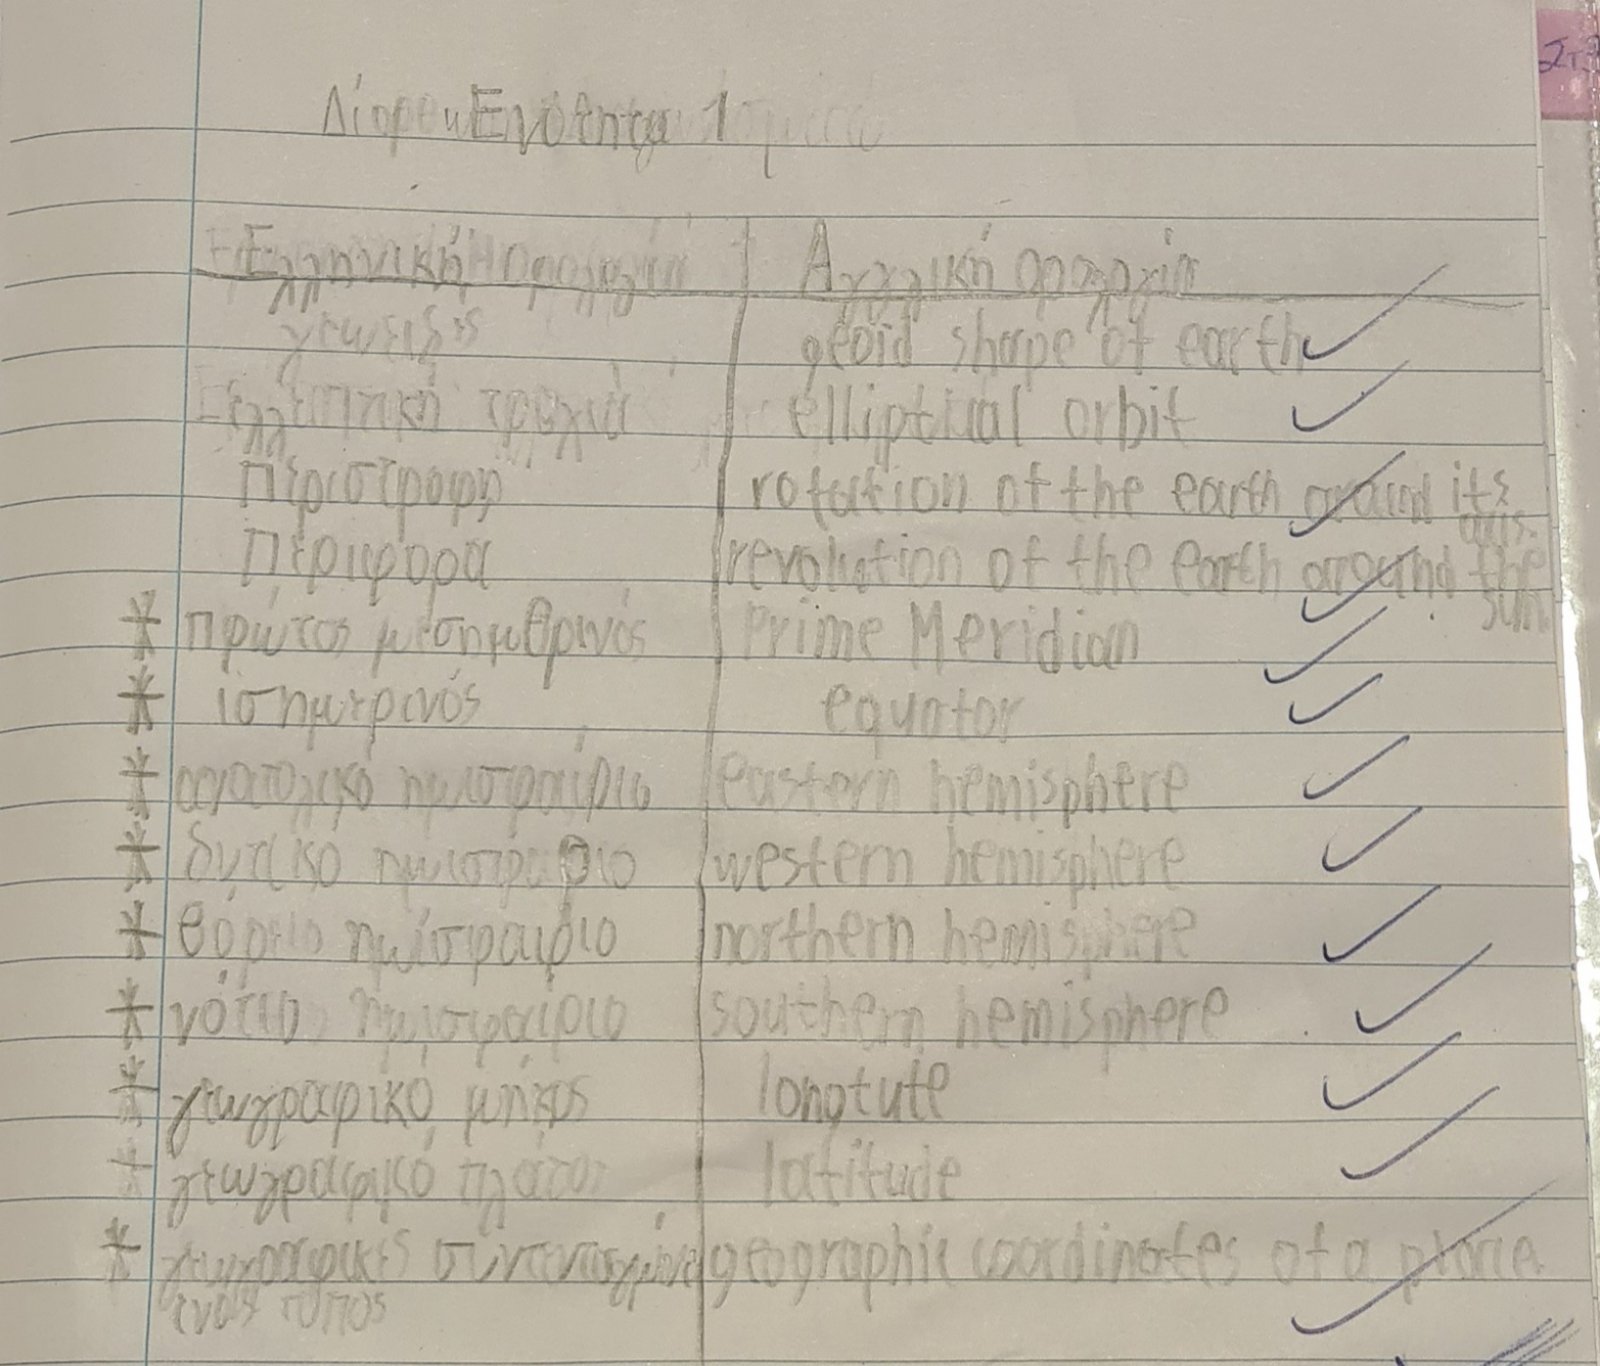 Ενότητα 1
Ελληνική ορολογία Αγγλική ορολογία
γεωειδές geoid shape of earth
Ελλειπτική τροχιά elliptical orbit
Περιστροφή rotation of the earth around its
axis.
Περιφορά revolution of the earth around the
sun
* πρώτος μεσημβρινός Prime Meridian
* ισημερινός equator
* ανατολικό ημισφαίριο eastern hemisphere
* δυτικό ημισφαίριο western hemisphere
* βόρειο ημισφαίριο northern hemisphere
* νότιο ημισφαίριο southern hemisphere
* γεωγραφικό μήκος longtute
* γεωγραφικό πλάτος latitude
* γεωγραφικές συντεταγμένες geographic coordinates of a place
ενός τόπος